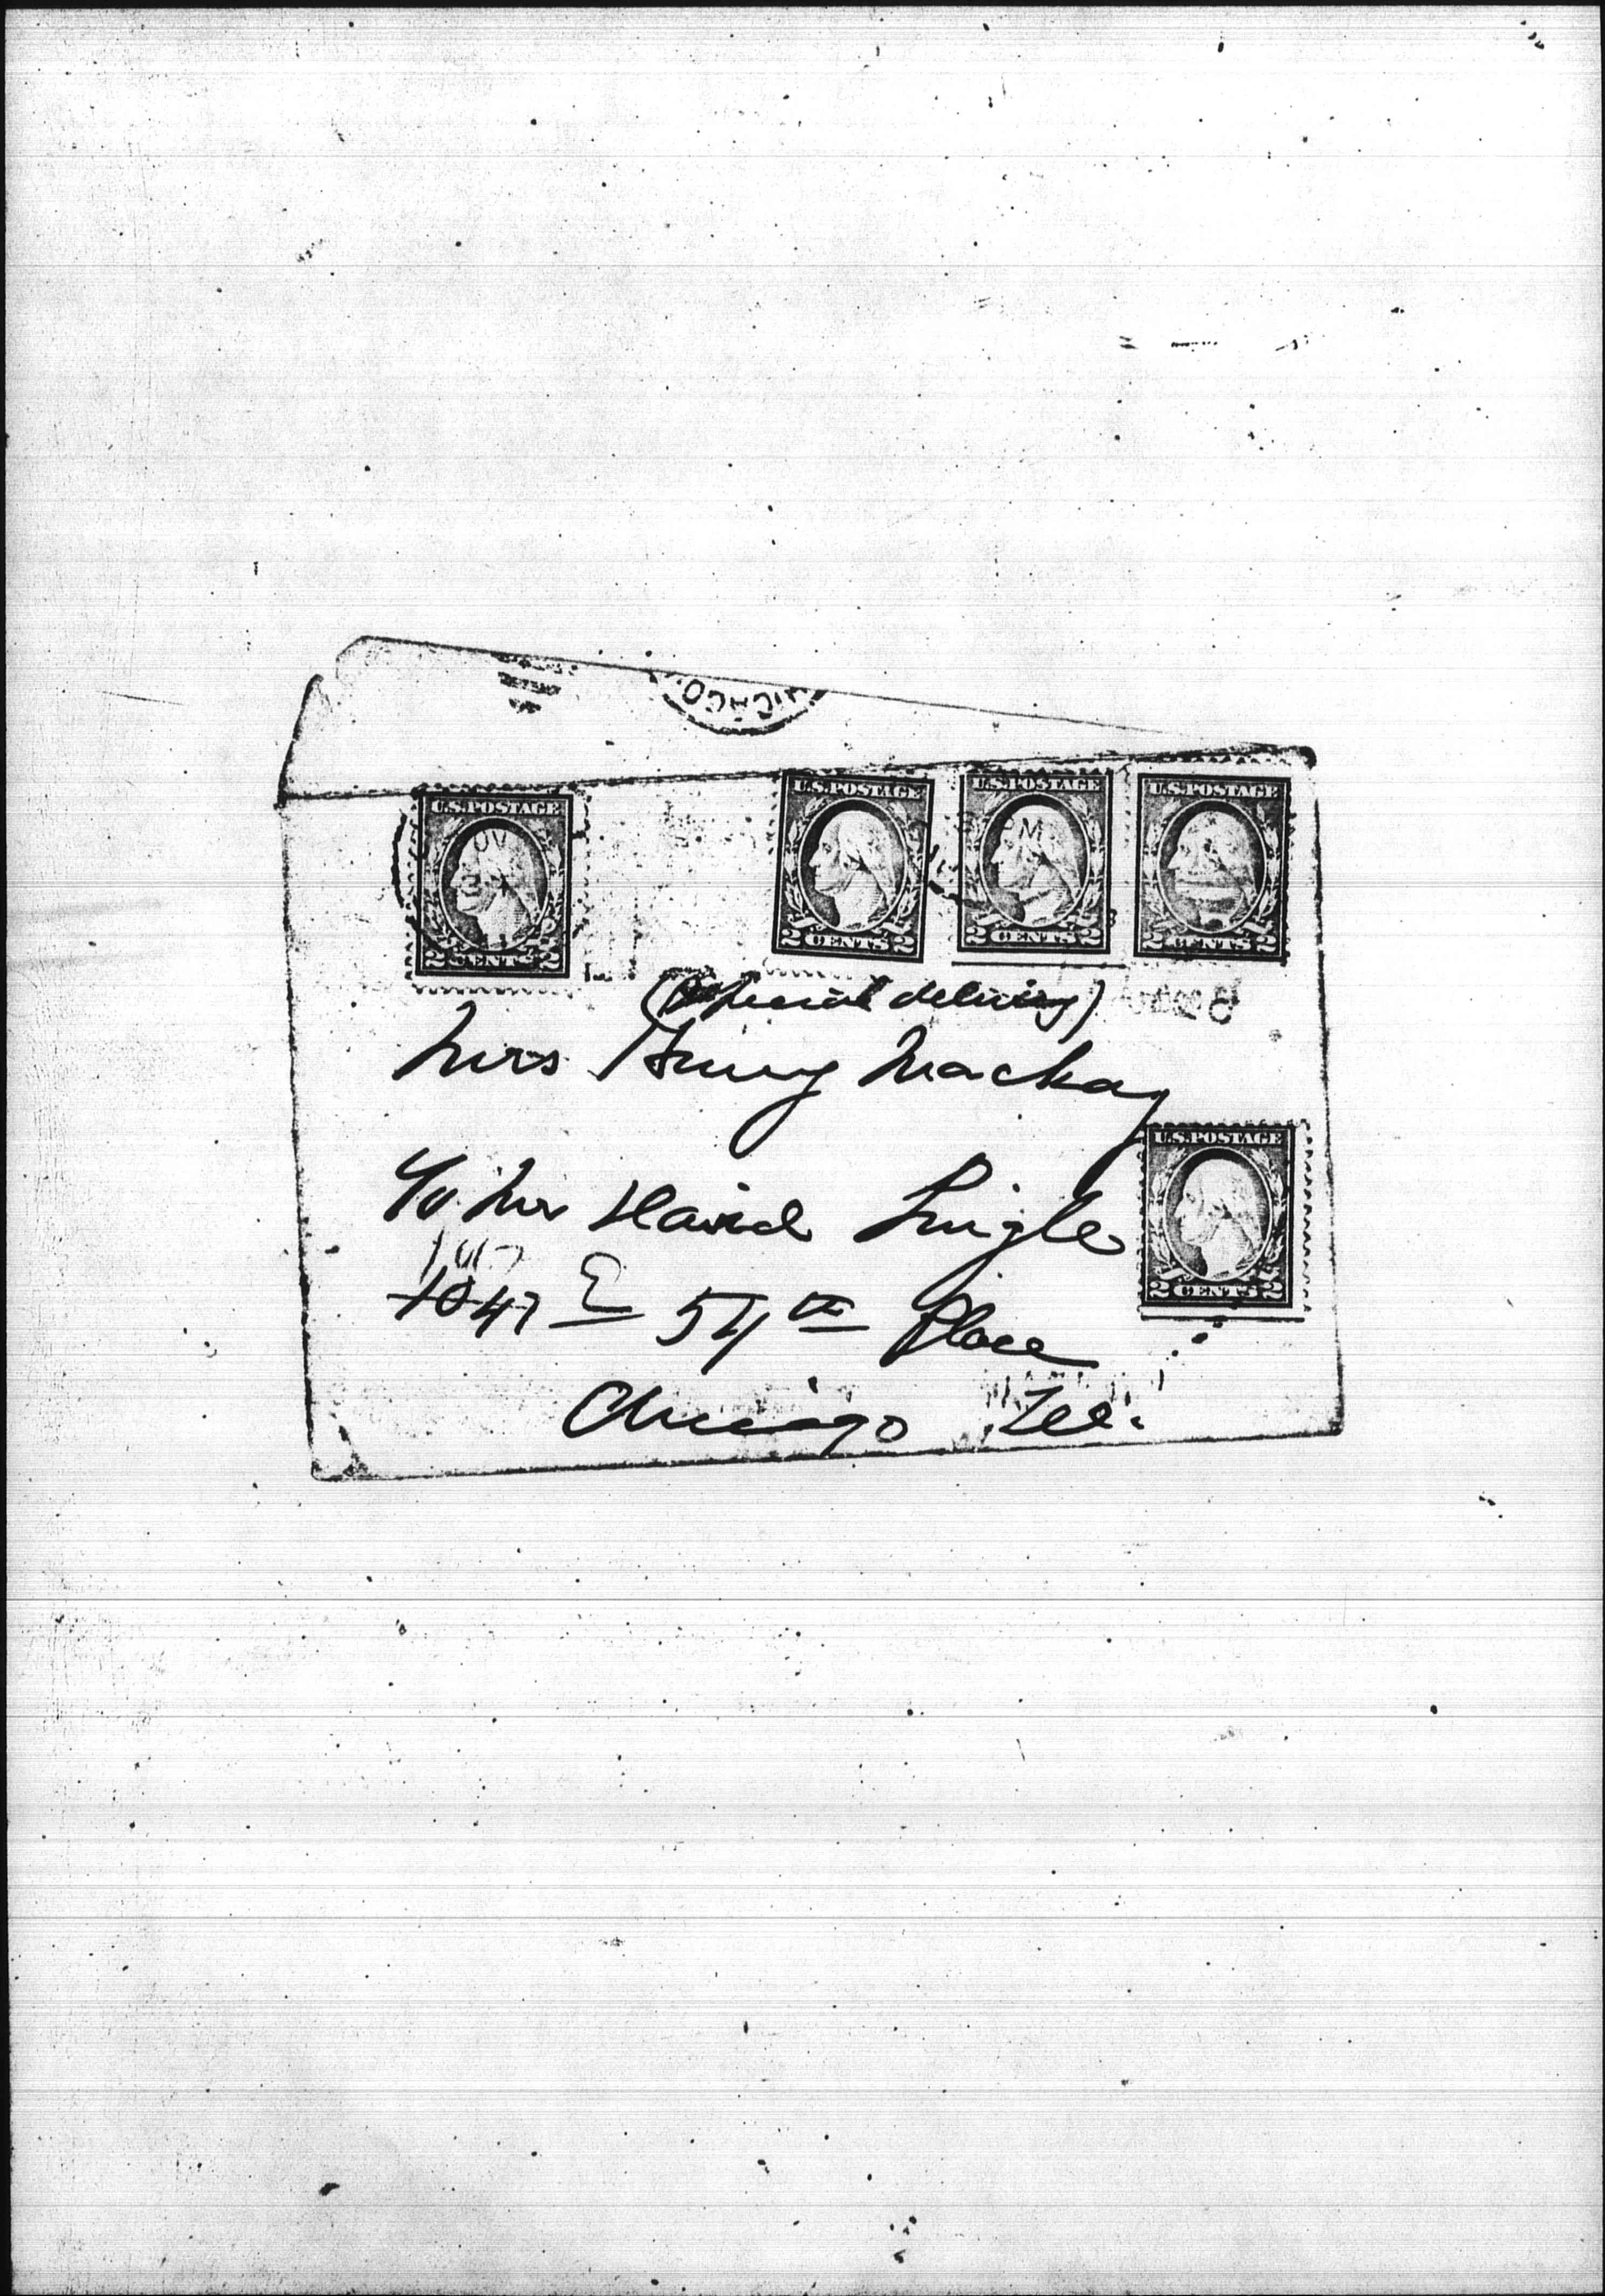 CHICAGO.
U.S. POSTAGE
2 CENTS 2
U.S. POSTAGE
2 CENTS 2
U.S. POSTAGE
PM
2 CENTS 2
U.S. POSTAGE
2 CENTS 2
(Special delivery)
Mrs Henry Mackay
U.S. POSTAGE
2 CENTS 2
Mr David Lingle
1047 E 54th Place
Chicago Ill.